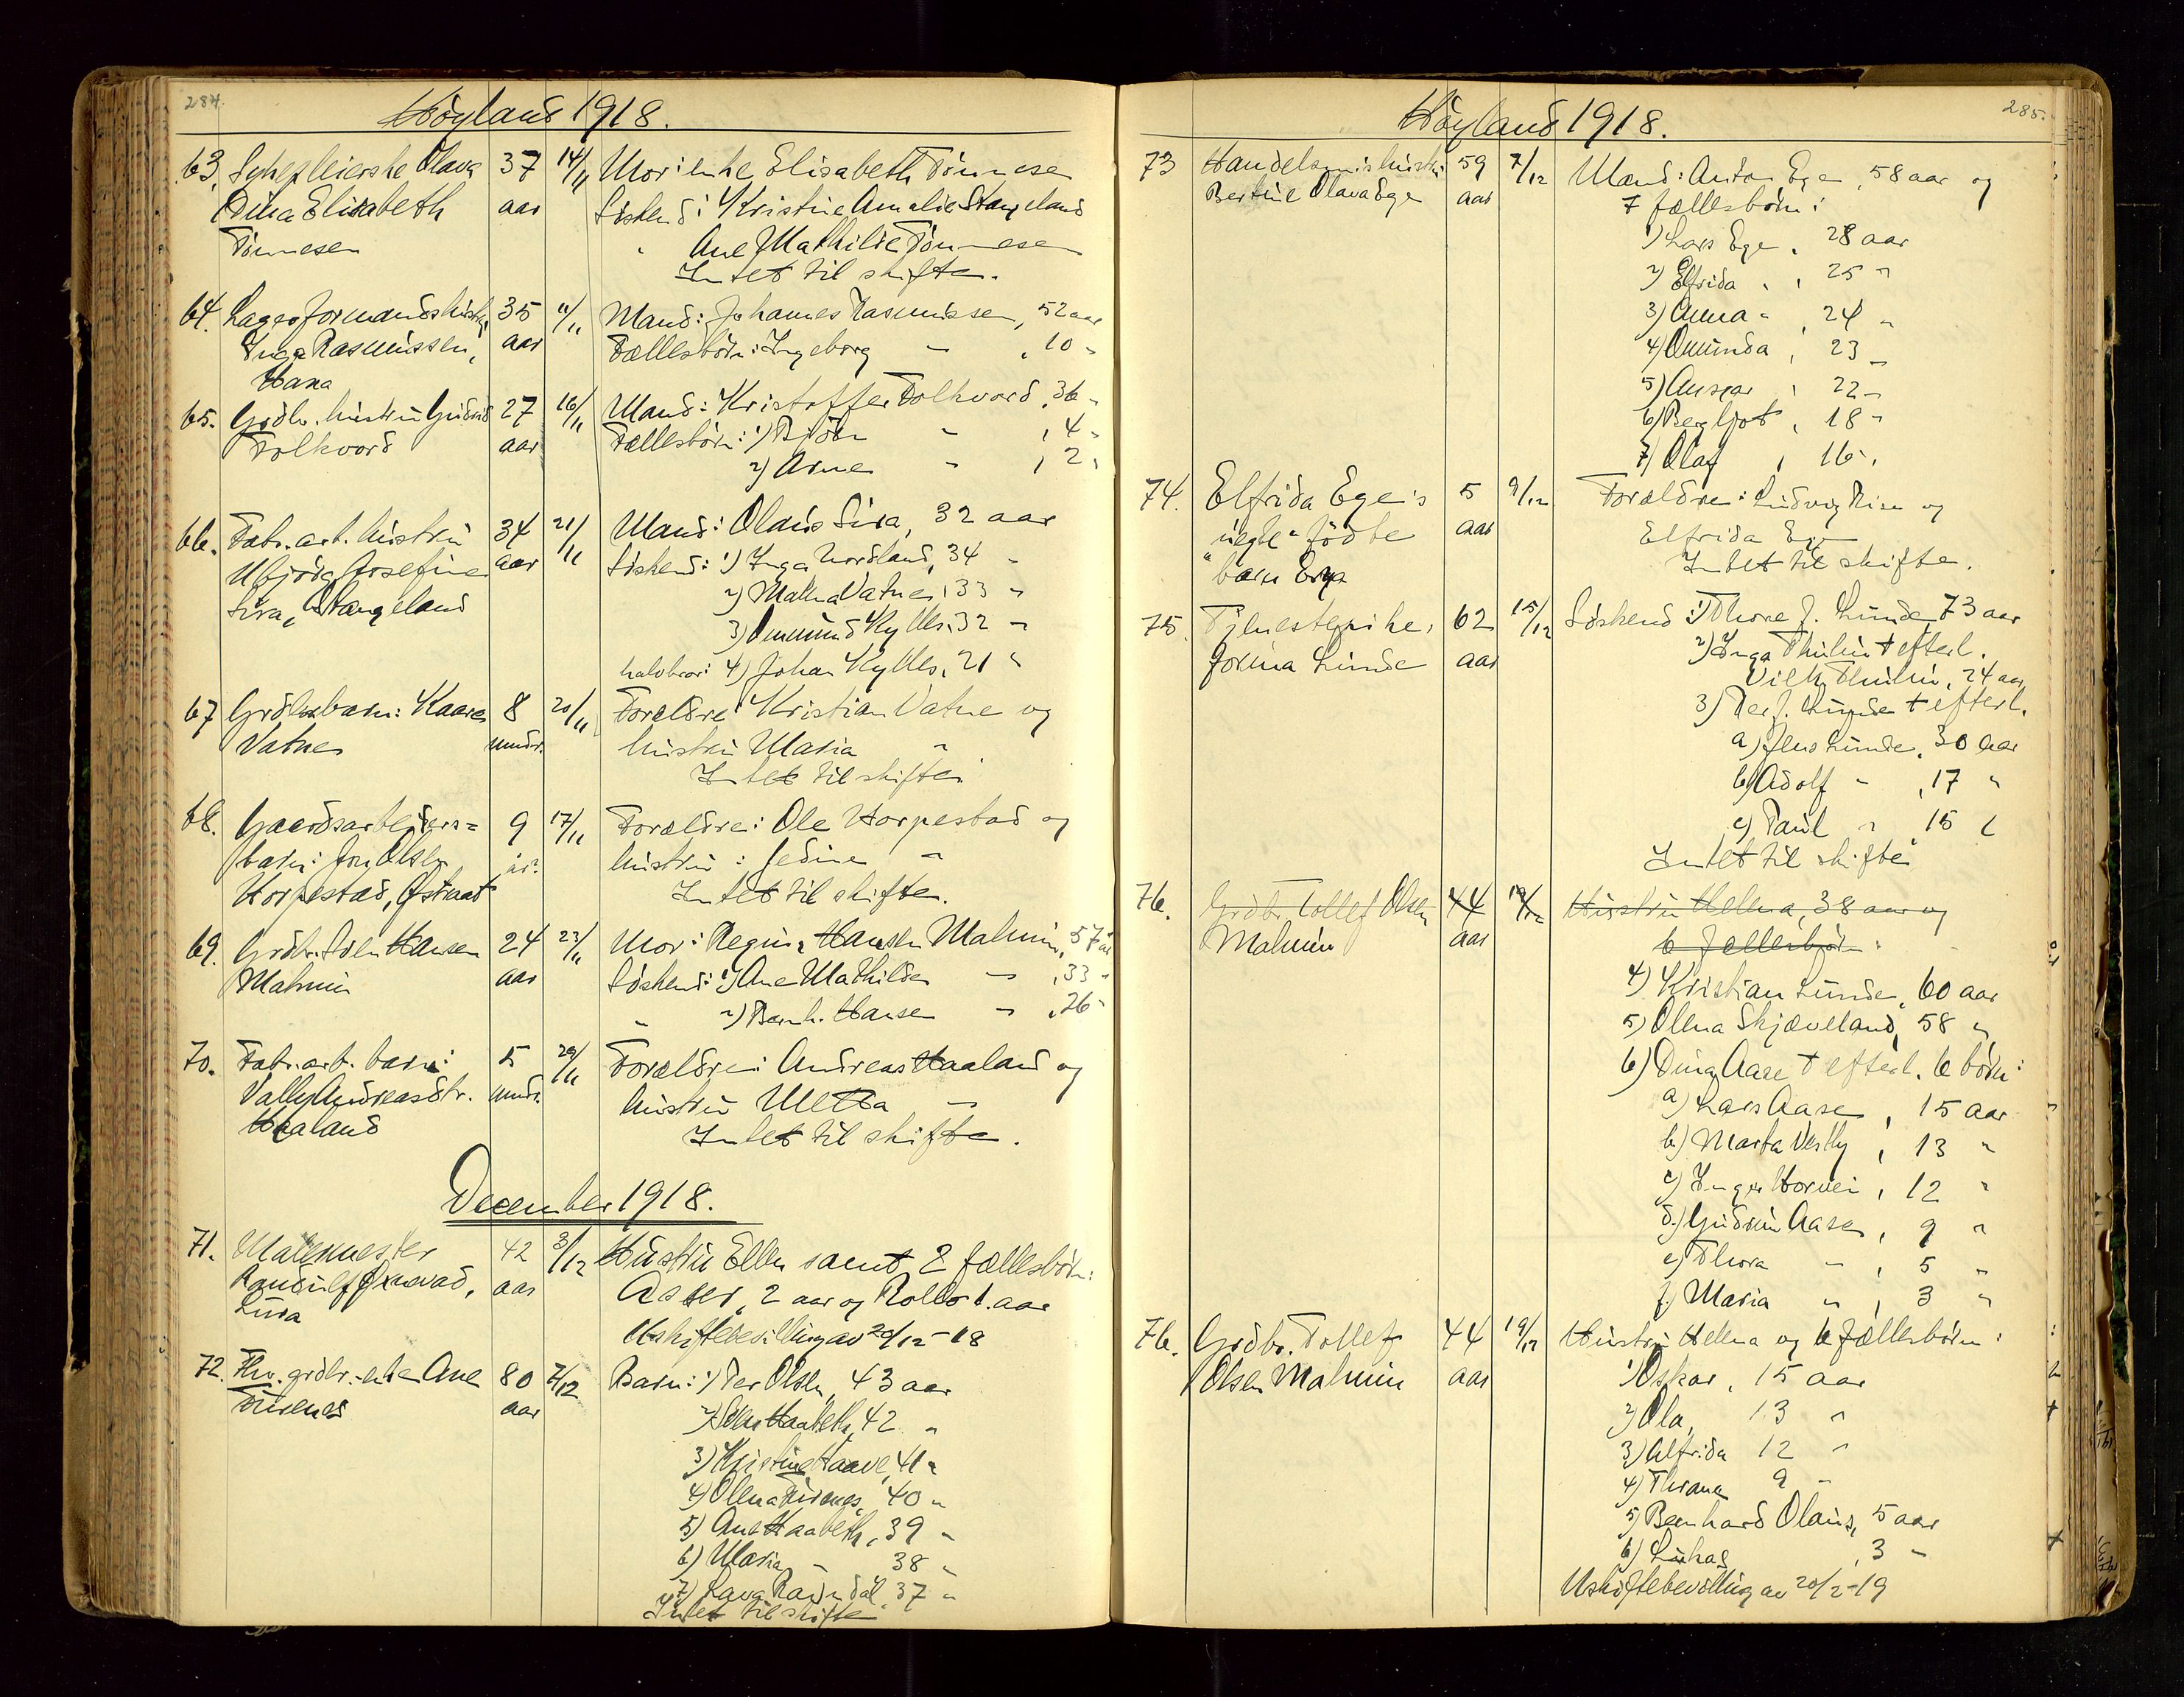 284.
Höyland 1918.
63. Sykepleierske Olava 37 14/11 Mor: enke Elisabeth Tönnesen
Dina Elisabeth aar Söskend: Kristine Amalie Stangeland
Tönnesen " Ane Mathilde Tönnesen
Intet til skifte.
64. Lagerformandshustru 35 11/11 Mand: Johannes Rasmussen, 52 aar
Inga Rasmussen, aar Fællesbörn: Ingeborg " , 10 "
Hana
65. Grdbr. hustru Gudrid 27 16/11 Mand: Kristoffer Folkvord, 36 "
Folkvord aar Fællesbörn: 1) Björn " , 4 "
2) Arne " , 2 "
66. Fabr. arb. hustru 34 21/11 Mand: Olaus Lura, 32 aar
Ubjörg Josefine aar Söskend: 1) Inga Nordland, 34 "
Lura, Stangeland 2) Malena Vatne, 33 "
3) Ommund Kylles, 32 "
halvbror: 4) Johan Kylles, 21 "
67 Grdbr. barn: Kaare 8 20/11 Forældre: Kristian Vatne og
Vatne mndr. hustru Maria "
Intet til skifte.
68. Gaardsarbeiders= 9 17/11 Forældre: Ole Horpestad og
barn: Jon Olsen år. hustru: Jedine "
Horpestad, Östraat Intet til skifte.
69. Grdbr. Sven Hansen 24 23/11 Mor: Regine Hansen Malmin, 57 år
Malmin aar Söskend: 1) Ane Mathilde " , 33 "
" 2) Bernh. Hansen " , 26 "
70. Fabr. arb. barn: 5 29/11 Forældre: Andreas Haaland og
Vally Andreasdtr. mndr. hustru Metha "
Haaland Intet til skifte.
December 1918.
71. Malermester 42 3/12 Hustru Ellen samt 2 fællesbörn:
Randulf aar Aster, 2 aar og Rollo 1. aar
Lura Uskiftebevilling av 20/12-18
72. Fhv. grdbr.-enke Ane 80 7/12 Barn: 1) Per Olsen, 43 aar
Tusenes aar 2) Sven Haabeth, 42 "
3) Kristine Haave, 41 "
4) Olena Tusenes, 40 "
5) Ane Haabeth, 39 "
6) Maria " 38 "
7) Lava Ravndal, 37 "
Intet til skifte
285.
Höyland 1918.
73 Handelsmnshustru 59 7/12 Mand: Anton Ege, 58 aar og
Bertine Olava Ege aar 7 fællesbörn:
1) Lars Ege, 28 aar
2) Elfrida " , 25 "
3) Anna " , 24 "
4) Omunda , 23 "
5) Ansgar , 22 "
6) Bergljot , 18 "
7) Olaf , 16 "
74. Elfrida Ege's 5 9/12 Forældre: Ludvig Riise og
"uegte" födte aar Elfrida Ege
barn Intet til skifte.
75. Tjenestepike, 62 15/12 Söskend: 1) Thore J. Lunde, 73 aar
Jorina Lunde aar 2) Inga Thulin † efterl.
Vilh. Thulin, 24 aar
3) Per J. Lunde † efterl.
a) Jens Lunde, 30 aar
b) Adolf " , 17 "
c) Paul " , 15 "
Intet til skifte
76. Grdbr. Tollef Olsen 44 19/12 Hustru Helena, 38 aar og
Malmin aar 6 fællesbörn:
4) Kristian Lunde, 60 aar
5) Olena Skjæveland, 58 "
6) Dina Aase † efterl. 6 börn:
a) Lars Aase, 15 aar
b) Marta Vestly, 13 "
c) Inger Horvei, 12 "
d.) Gudrun Aase, 9 "
e) Thora " , 5 "
f.) Maria " , 3 "
76. Grdbr. Tollef 44 19/12 Hustru Helena og 6 fællesbörn:
Olsen Malmin aar 1) Oskar, 15 aar
2) Ola, 13 "
3) Alfrida 12 "
4) Thrane 9 "
5) Bernhard Olaus, 5 aar
6) Lukas , 3 "
Uskiftebevilling av 20/2-19